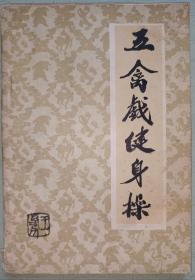 五禽戏健身操